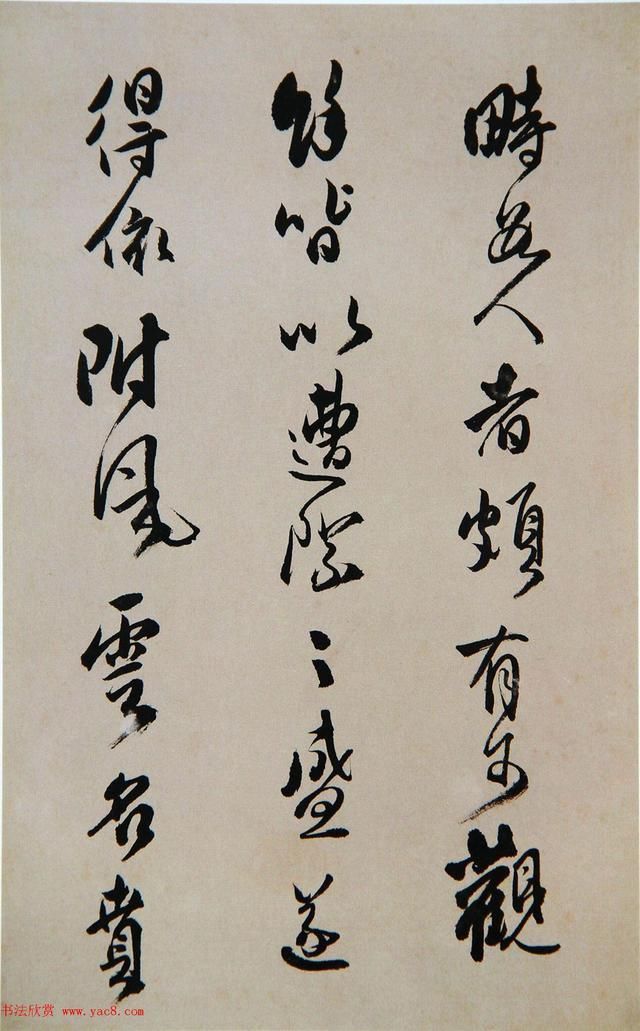 時若人者頗有可觀
餘皆以遭際之盛遂
得依附風雲名賁
书法欣赏 www.yac8.com